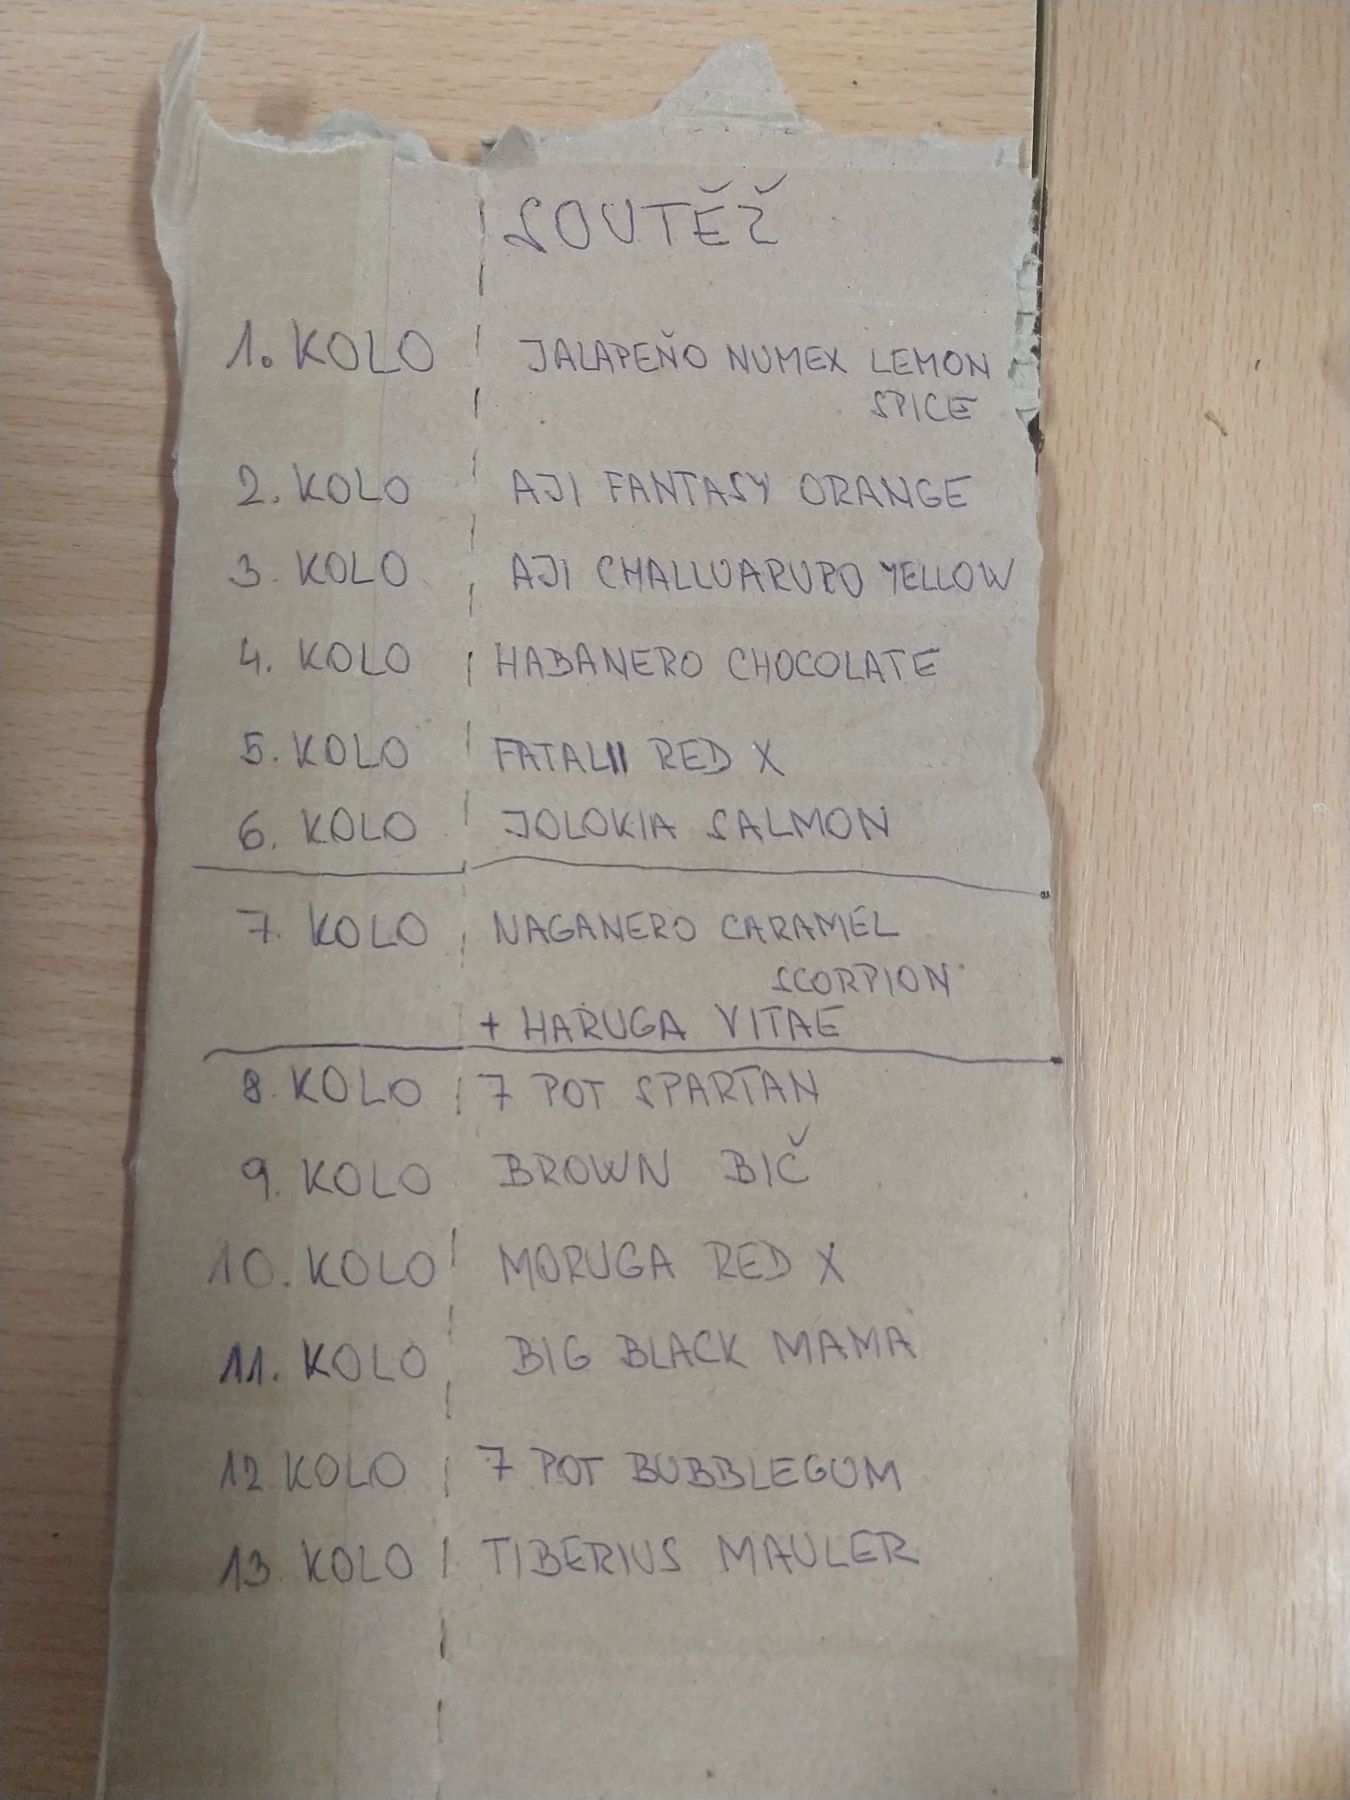 SOUTĚŽ
1. KOLO JALAPEŇO NUMEX LEMON
SPICE
2. KOLO AJI FANTASY ORANGE
3. KOLO AJI CHALLUARUPO YELLOW
4. KOLO HABANERO CHOCOLATE
5. KOLO FATALII RED X
6. KOLO JOLOKIA SALMON
7. KOLO NAGANERO CARAMEL
SCORPION
+ HARUGA VITAE
8. KOLO 7 POT SPARTAN
9. KOLO BROWN BIČ
10. KOLO MORUGA RED X
11. KOLO BIG BLACK MAMA
12 KOLO 7 POT BUBBLEGUM
13. KOLO TIBERIUS MAULER